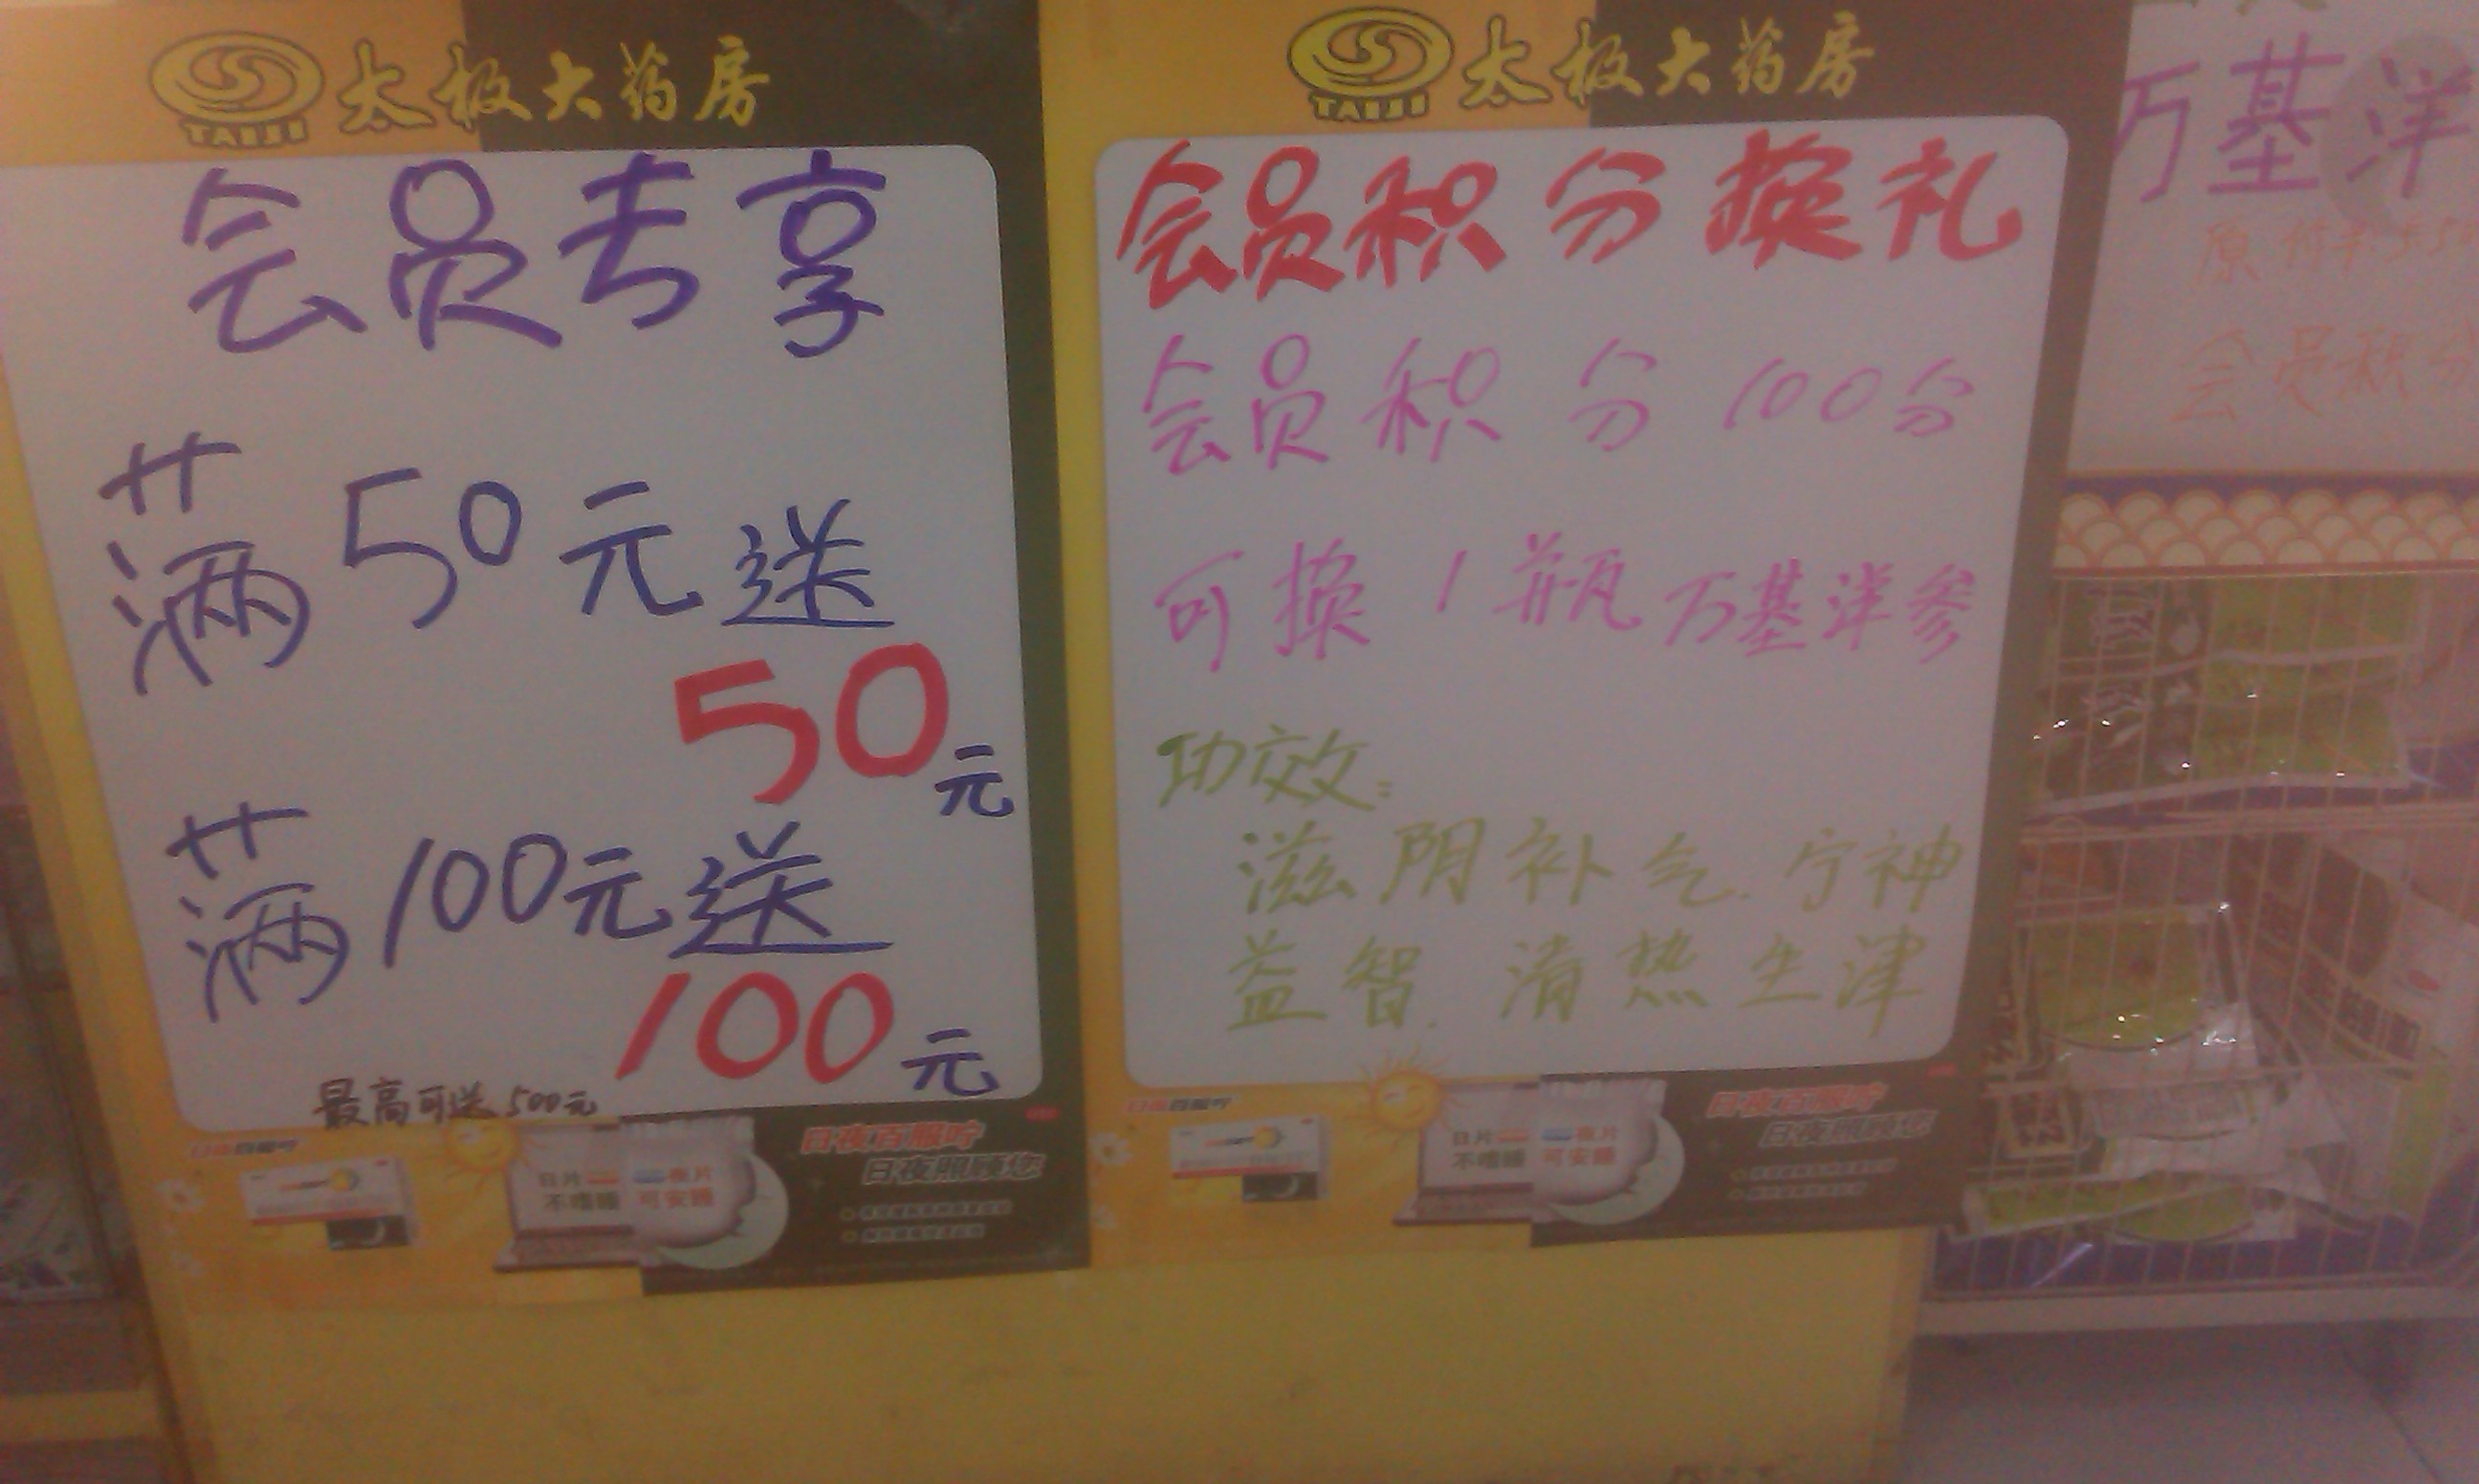 TAIJI 太极大药房
会员专享
满50元送
50元
满100元送
100元
最高可送500元
日夜百服咛
日片 夜片
不嗜睡 可安睡
日夜百服咛
日夜照顾您
TAIJI 太极大药房
会员积分换礼
会员积分100分
可换1瓶万基洋参
功效:
滋阴补气.宁神
益智.清热生津
日夜百服咛
日片 夜片
不嗜睡 可安睡
日夜百服咛
日夜照顾您
万基洋
原价
会员积分